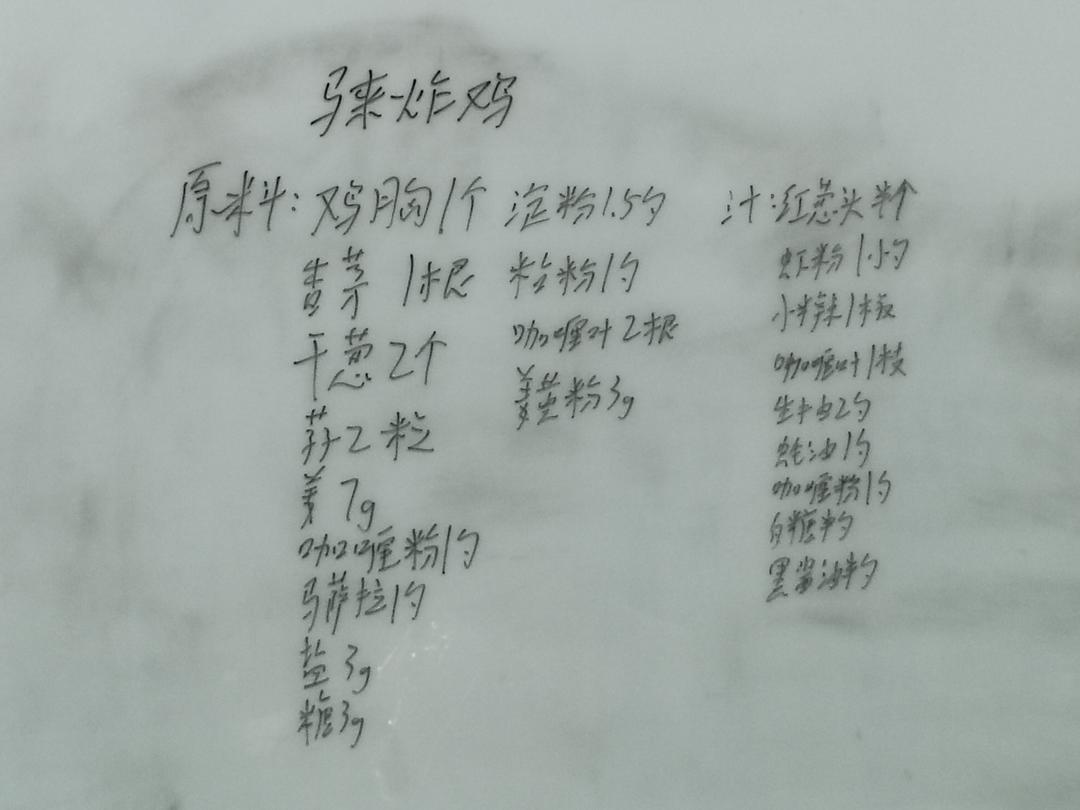 马来炸鸡
原料:鸡胸1个
香茅 1根
干葱2个
蒜2粒
姜 7g
咖喱粉1勺
马萨拉1勺
盐 3g
糖3g
淀粉1.5勺
粘粉1勺
咖喱叶2根
姜黄粉3g
汁:红葱头半个
虾粉1小勺
小米辣1根
咖喱叶1枝
生抽2勺
蚝油1勺
咖喱粉1勺
白糖半勺
黑酱油半勺